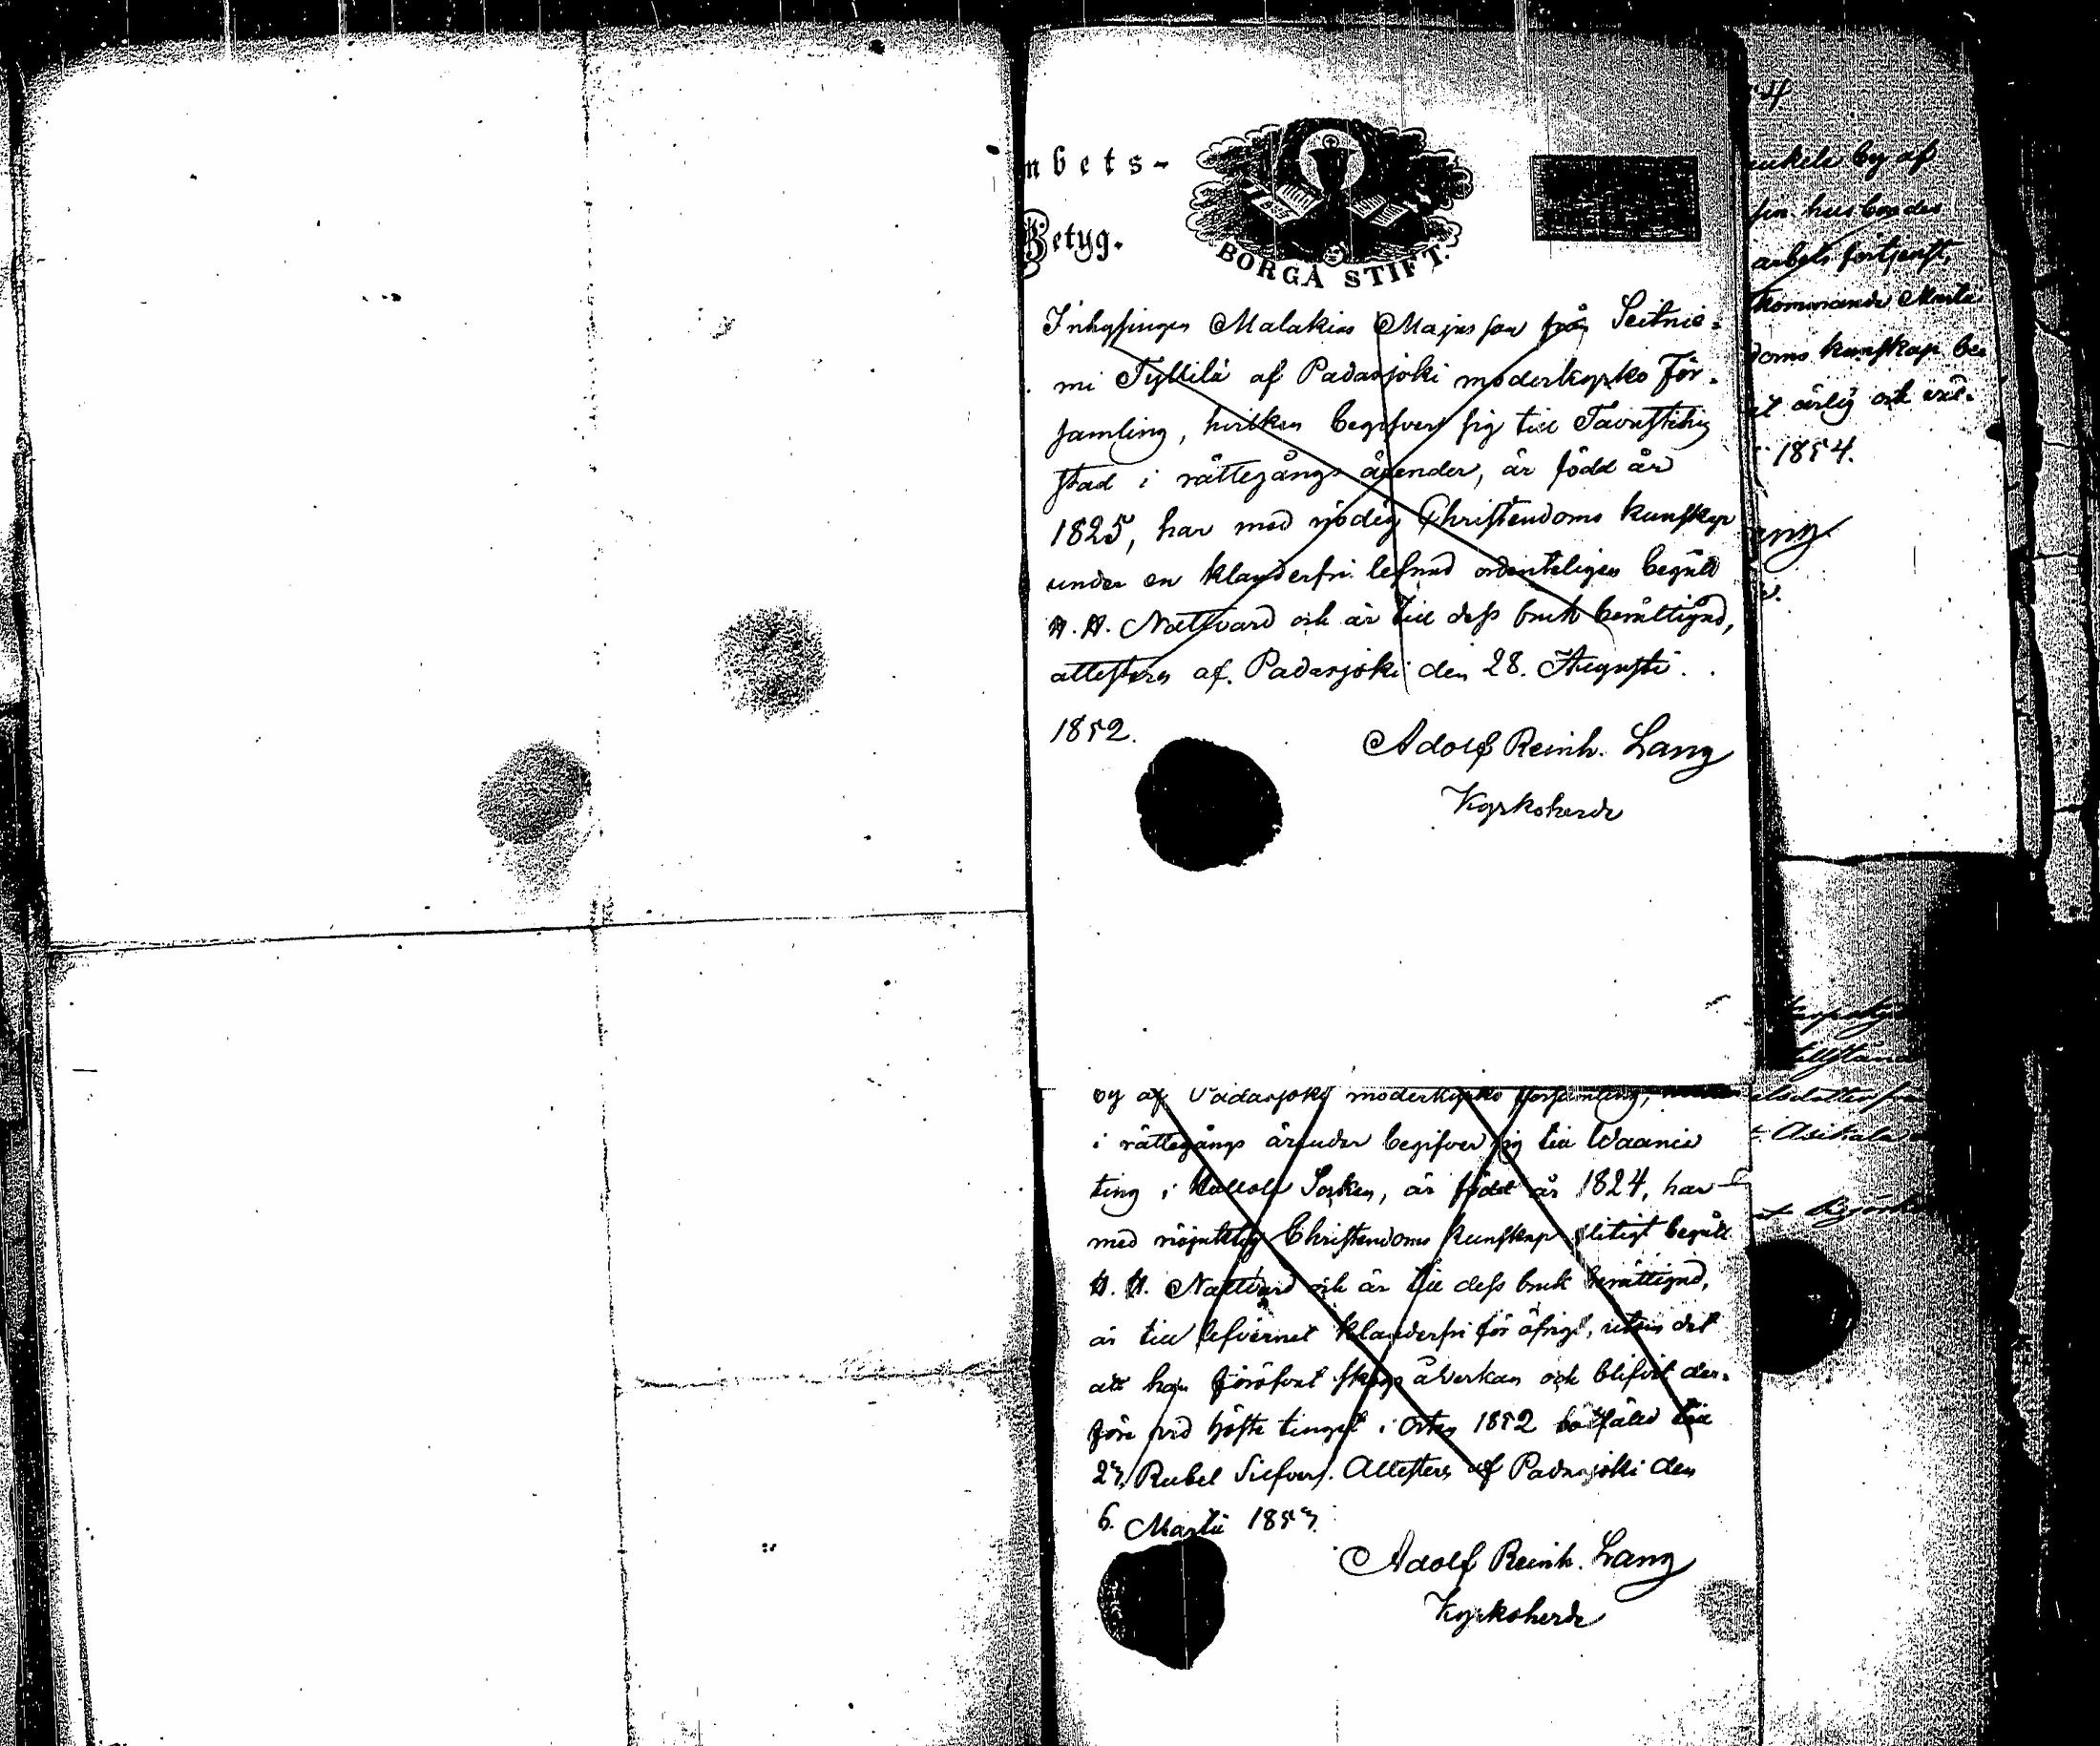 mbets-
Betyg.
BORGÅ STIFT.
Inhysingen Malakias Majas son från Seitnie-
mi Tyllilä af Padasjoki moderkyrko För-
samling, hvilken begifver sig till Tavastehus
stad i rättegångs ärender, är född år
1825, har med nödig Christendoms kunskap
under en klanderfri lefnad ordentligen begått
H. H. Nattvard och är till dess bruk berättigad,
attesteras af. Padasjoki den 28. Augusti.
1852.
Adolf Reinh. Lang
Kyrkoherde
by af Padasjoki moderkyrko församling,
i rättegångs ärender begifver sig till Waania
ting i Kallola Socken, är född år 1824, har
med nöjaktig Christendoms kunskap flitigt begått
H. H. Nattvard och är till dess bruk berättigad,
är till lefvernet klanderfri för öfrigt, utom det
att han föröfvat skogs åverkan och blifvit der-
före vid höste tinget i Orten 1852 bötfäld till
27, Rubel Silfver. Attesteras af Padasjoki den
6. Martii 1853.
Adolf Reinh. Lang
Kyrkoherde
4
by af
husbondes
arbets förtjenst,
kommande Martii
doms kunskap be
ärlig och väl-
1854.
Asikala